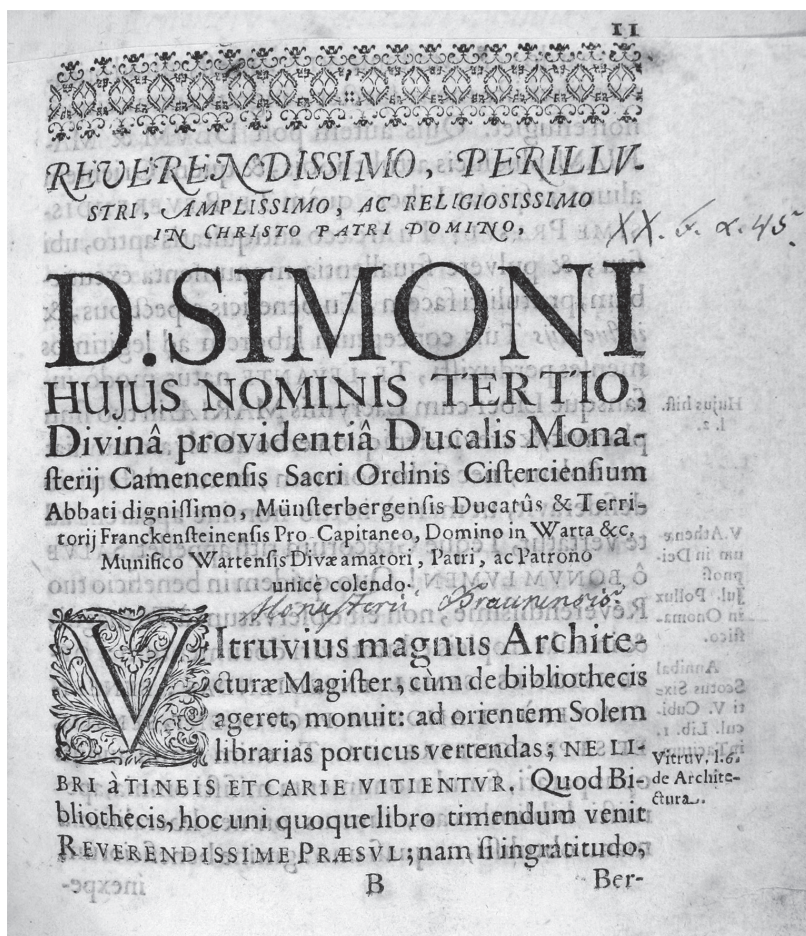 11
REVERENDISSIMO, PERILLU-
STRI, AMPLISSIMO, AC RELIGIOSISSIMO
IN CHRISTO PATRI DOMINO,
XX. 45.
D. SIMONI
HUJUS NOMINIS TERTIO,
Divinâ providentiâ Ducalis Mona-
ſterij Camencenſis Sacri Ordinis Ciſtercienſium
Abbati digniſſimo, Münſterbergenſis Ducatûs & Terri-
torij Franckenſteinenſis Pro-Capitaneo, Domino in Warta &c.
Munifico Wartenſis Divæ amatori, Patri, ac Patrono
unicè colendo.
Monasterii Braunensis.
VItruvius magnus Archite-
cturæ Magiſter, cùm de bibliothecis
ageret, monuit: ad orientem Solem
librarias porticus vertendas; NE LI-
BRI à TINEIS ET CARIE VITIENTVR. Quod Bi-
bliothecis, hoc uni quoque libro timendum venit
REVERENDISSIME PRÆSVL; nam ſi ingratitudo,
Vitruv. l. 6.
de Archite-
ctura.
B
Ber-